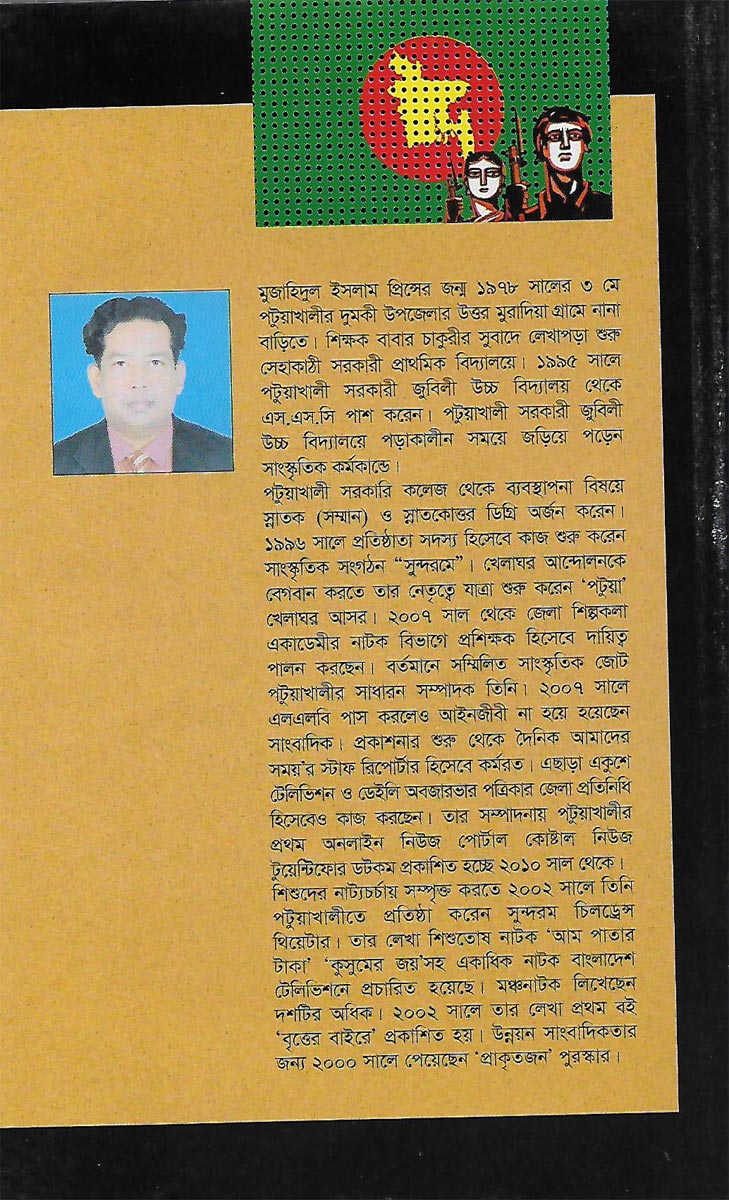 মুজাহিদুল ইসলাম প্রিন্সের জন্ম ১৯৭৮ সালের ৩ মে
পটুয়াখালীর দুমকী উপজেলার উত্তর মুরাদিয়া গ্রামে নানা
বাড়িতে। শিক্ষক বাবার চাকুরীর সুবাদে লেখাপড়া শুরু
সেহাকাঠী সরকারী প্রাথমিক বিদ্যালয়ে। ১৯৯৫ সালে
পটুয়াখালী সরকারী জুবিলী উচ্চ বিদ্যালয় থেকে
এস.এস.সি পাশ করেন। পটুয়াখালী সরকারী জুবিলী
উচ্চ বিদ্যালয়ে পড়াকালীন সময়ে জড়িয়ে পড়েন
সাংস্কৃতিক কর্মকান্ডে।
পটুয়াখালী সরকারি কলেজ থেকে ব্যবস্থাপনা বিষয়ে
স্নাতক (সম্মান) ও স্নাতকোত্তর ডিগ্রি অর্জন করেন।
১৯৯৬ সালে প্রতিষ্ঠাতা সদস্য হিসেবে কাজ শুরু করেন
সাংস্কৃতিক সংগঠন “সুন্দরমে”। খেলাঘর আন্দোলনকে
বেগবান করতে তার নেতৃত্বে যাত্রা শুরু করেন ‘পটুয়া’
খেলাঘর আসর। ২০০৭ সাল থেকে জেলা শিল্পকলা
একাডেমীর নাটক বিভাগে প্রশিক্ষক হিসেবে দায়িত্ব
পালন করছেন। বর্তমানে সম্মিলিত সাংস্কৃতিক জোট
পটুয়াখালীর সাধারন সম্পাদক তিনি। ২০০৭ সালে
এলএলবি পাস করলেও আইনজীবী না হয়ে হয়েছেন
সাংবাদিক। প্রকাশনার শুরু থেকে দৈনিক আমাদের
সময়’র স্টাফ রিপোর্টার হিসেবে কর্মরত। এছাড়া একুশে
টেলিভিশন ও ডেইলি অবজারভার পত্রিকার জেলা প্রতিনিধি
হিসেবেও কাজ করছেন। তার সম্পাদনায় পটুয়াখালীর
প্রথম অনলাইন নিউজ পোর্টাল কোষ্টাল নিউজ
টুয়েন্টিফোর ডটকম প্রকাশিত হচ্ছে ২০১০ সাল থেকে।
শিশুদের নাট্যচর্চায় সম্পৃক্ত করতে ২০০২ সালে তিনি
পটুয়াখালীতে প্রতিষ্ঠা করেন সুন্দরম চিলড্রেন্স
থিয়েটার। তার লেখা শিশুতোষ নাটক ‘আম পাতার
টাকা’ ‘কুসুমের জয়’সহ একাধিক নাটক বাংলাদেশ
টেলিভিশনে প্রচারিত হয়েছে। মঞ্চনাটক লিখেছেন
দশটির অধিক। ২০০২ সালে তার লেখা প্রথম বই
‘বৃত্তের বাইরে’ প্রকাশিত হয়। উন্নয়ন সাংবাদিকতার
জন্য ২০০০ সালে পেয়েছেন ‘প্রাকৃতজন’ পুরস্কার।